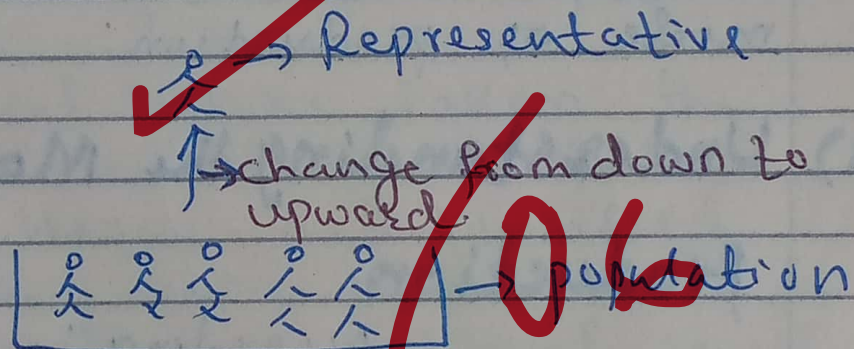 → Representative
↑→ change from down to
upward.
→ population
06